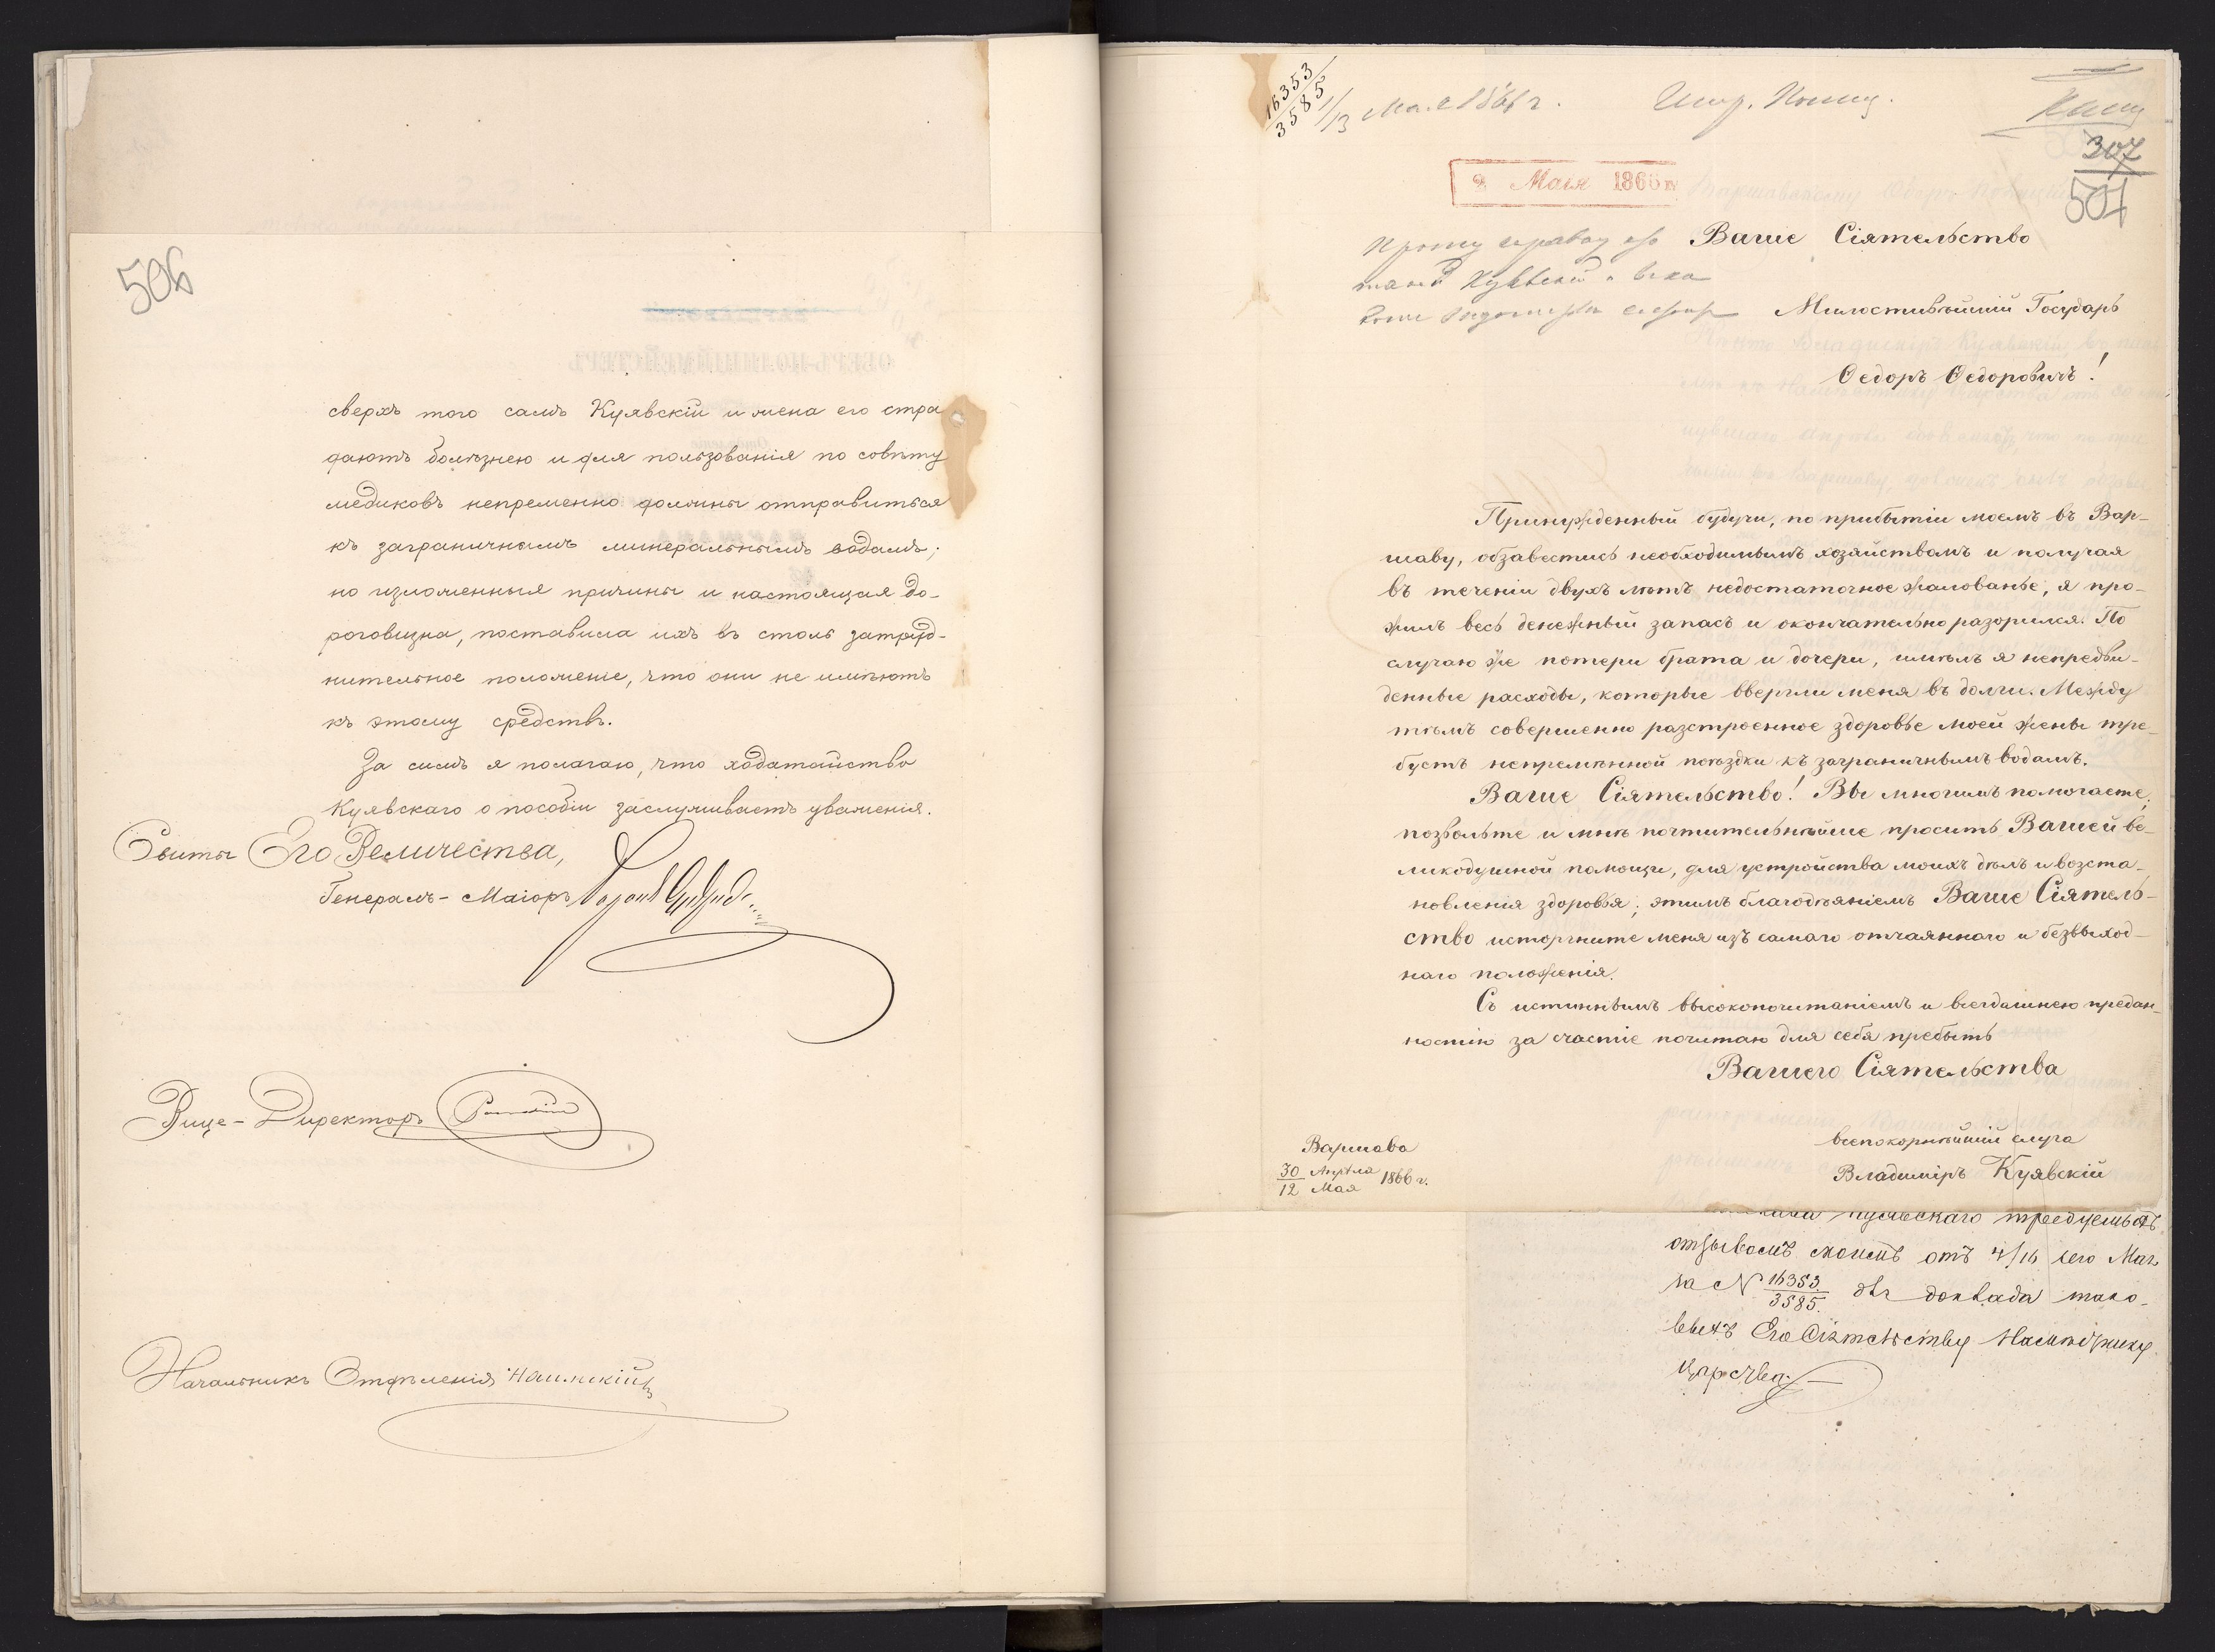 506
сверхъ того самъ Куявскій и жена его стра
даютъ болѣзнею и для пользованія по совѣту
медиковъ непременно должны отправиться
къ заграничнымъ минеральнымъ водамъ;
но изложенныя причины и настоящая до-
роговизна, поставила ихъ въ столь затруд-
нительное положеніе, что они не имѣютъ
къ этому средствъ.
За симъ я полагаю, что ходатайство
Куявскаго о пособіи заслуживаетъ уваженія.
Свиты Его Величества,
Генералъ-Маіоръ Баронъ
Вице-Директоръ
Начальникъ Отдѣленія
16353
3585
1/13 Мая 1866 г.
307
501
Мая 1866
Прошу
Ваше Сіятельство
Милостивѣйшій Государь
Ѳедоръ Ѳедоровичъ!
Принужденный будучи, по прибытіи моемъ въ Вар-
шаву, обзавестись необходимымъ хозяйствомъ и получая
въ теченіи двухъ лѣтъ недостаточное жалованье, я про-
жилъ весь денежный запасъ и окончательно разорился. По
случаю же потери брата и дочери, имѣлъ я непредви-
денные расходы, которые ввергли меня въ долги. Между
тѣмъ совершенно разстроенное здоровье моей жены тре-
буетъ непремѣнной поѣздки къ заграничнымъ водамъ.
Ваше Сіятельство! Вы многимъ помогаете;
позвольте и мнѣ почтительнѣйше просить Вашей ве-
ликодушной помощи, для устройства моихъ дѣлъ и возста-
новленія здоровья; этимъ благодѣяніемъ Ваше Сіятель-
ство исторгните меня изъ самаго отчаяннаго и безвыход-
наго положенія.
Съ истиннымъ высокопочитаніемъ и всегдашнею предан-
ностію за счастіе почитаю для себя пребыть
Вашего Сіятельства
всепокорнѣйшій слуга
Владиміръ Куявскій
Варшава
30 Апрѣля
12 Мая 1866 г.
Куявскаго требуемыхъ
отзывомъ моимъ отъ 4/16 сего Мая
за N 16353
3585. для доклада тако-
выхъ Его Сіятельству Намѣстнику
Царства.